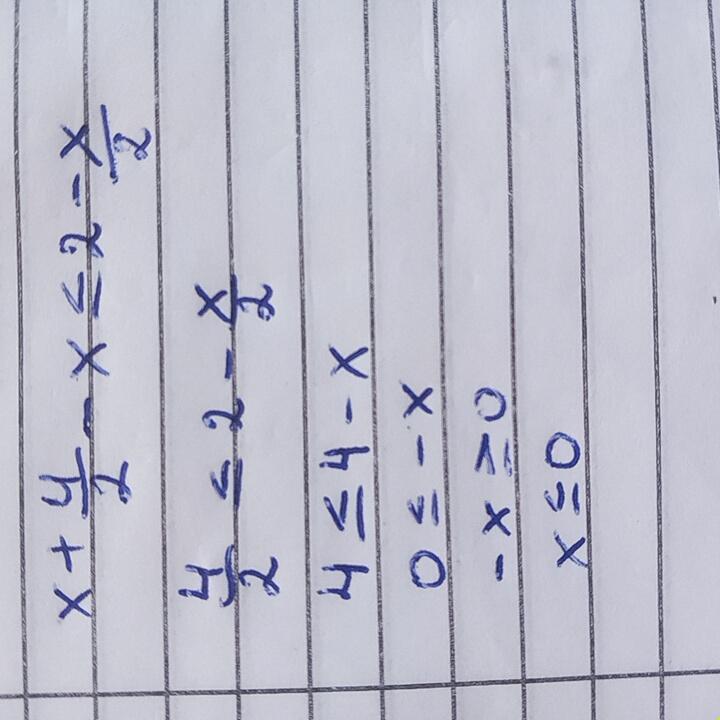 x + 4/2 - x ≤ 2 - x/2
4/2 ≤ 2 - x/2
4 ≤ 4 - x
0 ≤ - x
- x ≥ 0
x ≤ 0